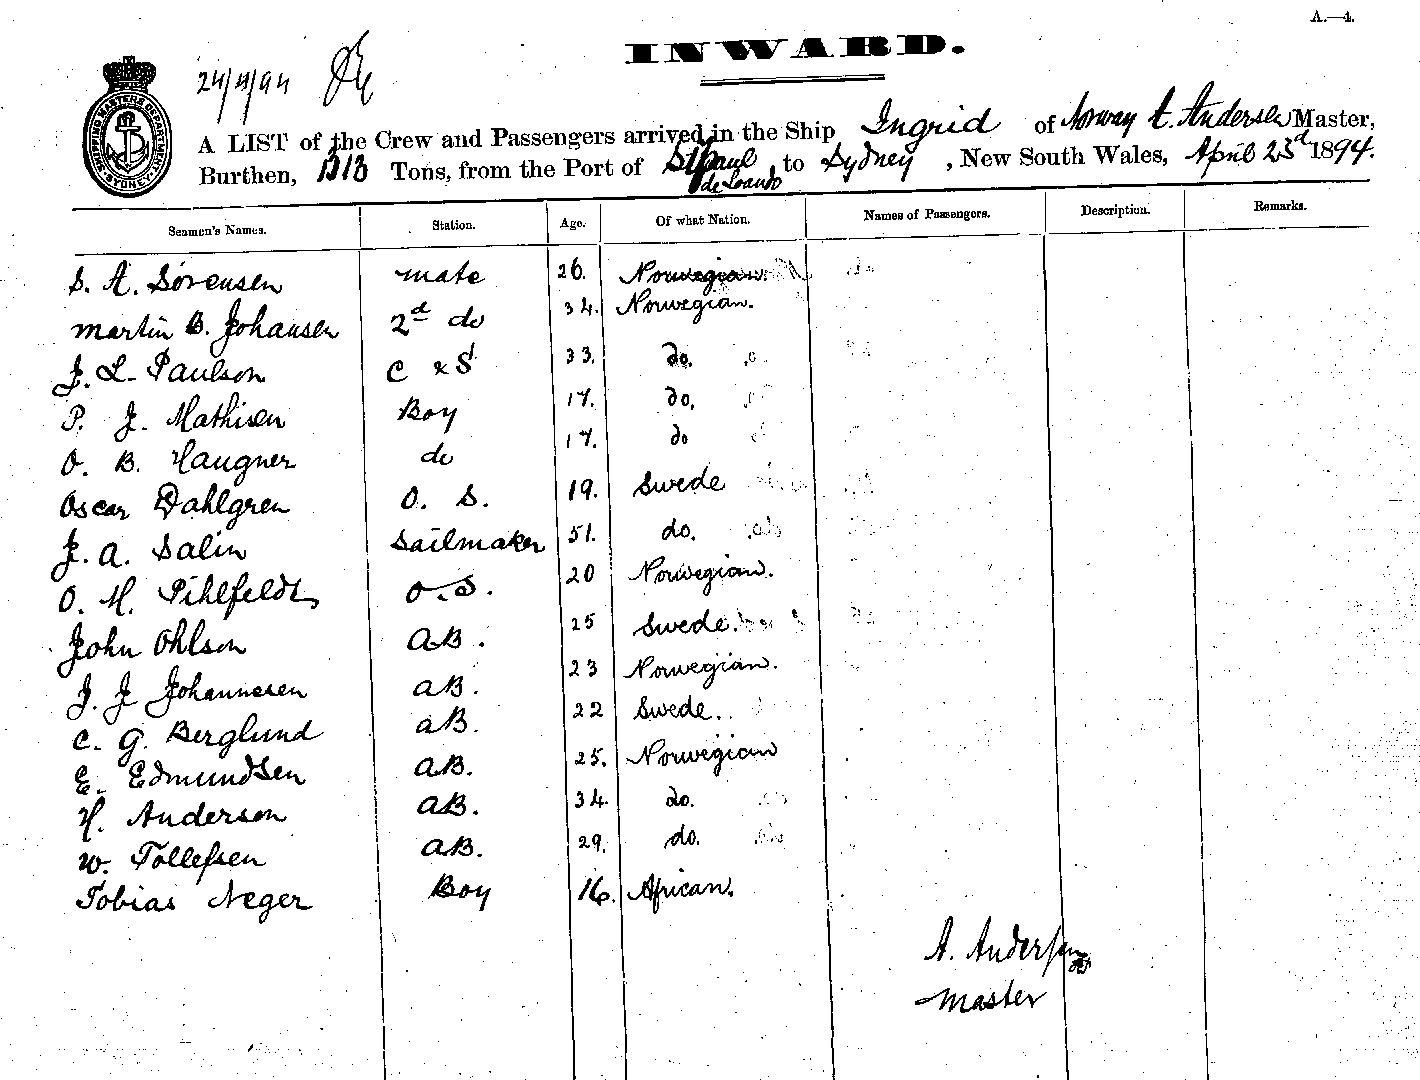 A.—4.
INWARD.
24/4/94
SHIPPING MASTERS DEPARTMENT SYDNEY
A LIST of the Crew and Passengers arrived in the Ship Ingrid of Norway A. Andersen Master,
Burthen, 1313 Tons, from the Port of St Paul de Loando to Sydney, New South Wales, April 23rd 1894.
Seamen's Names. Station. Age. Of what Nation. Names of Passengers. Description. Remarks.
S. A. Sorensen mate 26. Norwegian.
Martin B. Johansen 2nd do 34. Norwegian.
J. L. Paulson C & S 33. do.
P. J. Mathisen Boy 17. do.
O. B. Haugner do 17. do
Oscar Dahlgren O. S. 19. Swede
J. A. Salin Sailmaker 51. do.
O. M. Pihlfeldt O.S. 20 Norwegian.
John Ohlson AB. 25 Swede.
J. J. Johannesen AB. 23 Norwegian.
C. G. Berglund AB. 22 Swede.
E. Edmundsen AB. 25. Norwegian
H. Anderson AB. 34. do.
W. Tollefsen AB. 29. do.
Tobias Neger Boy 16. African.
A. Andersen
Master